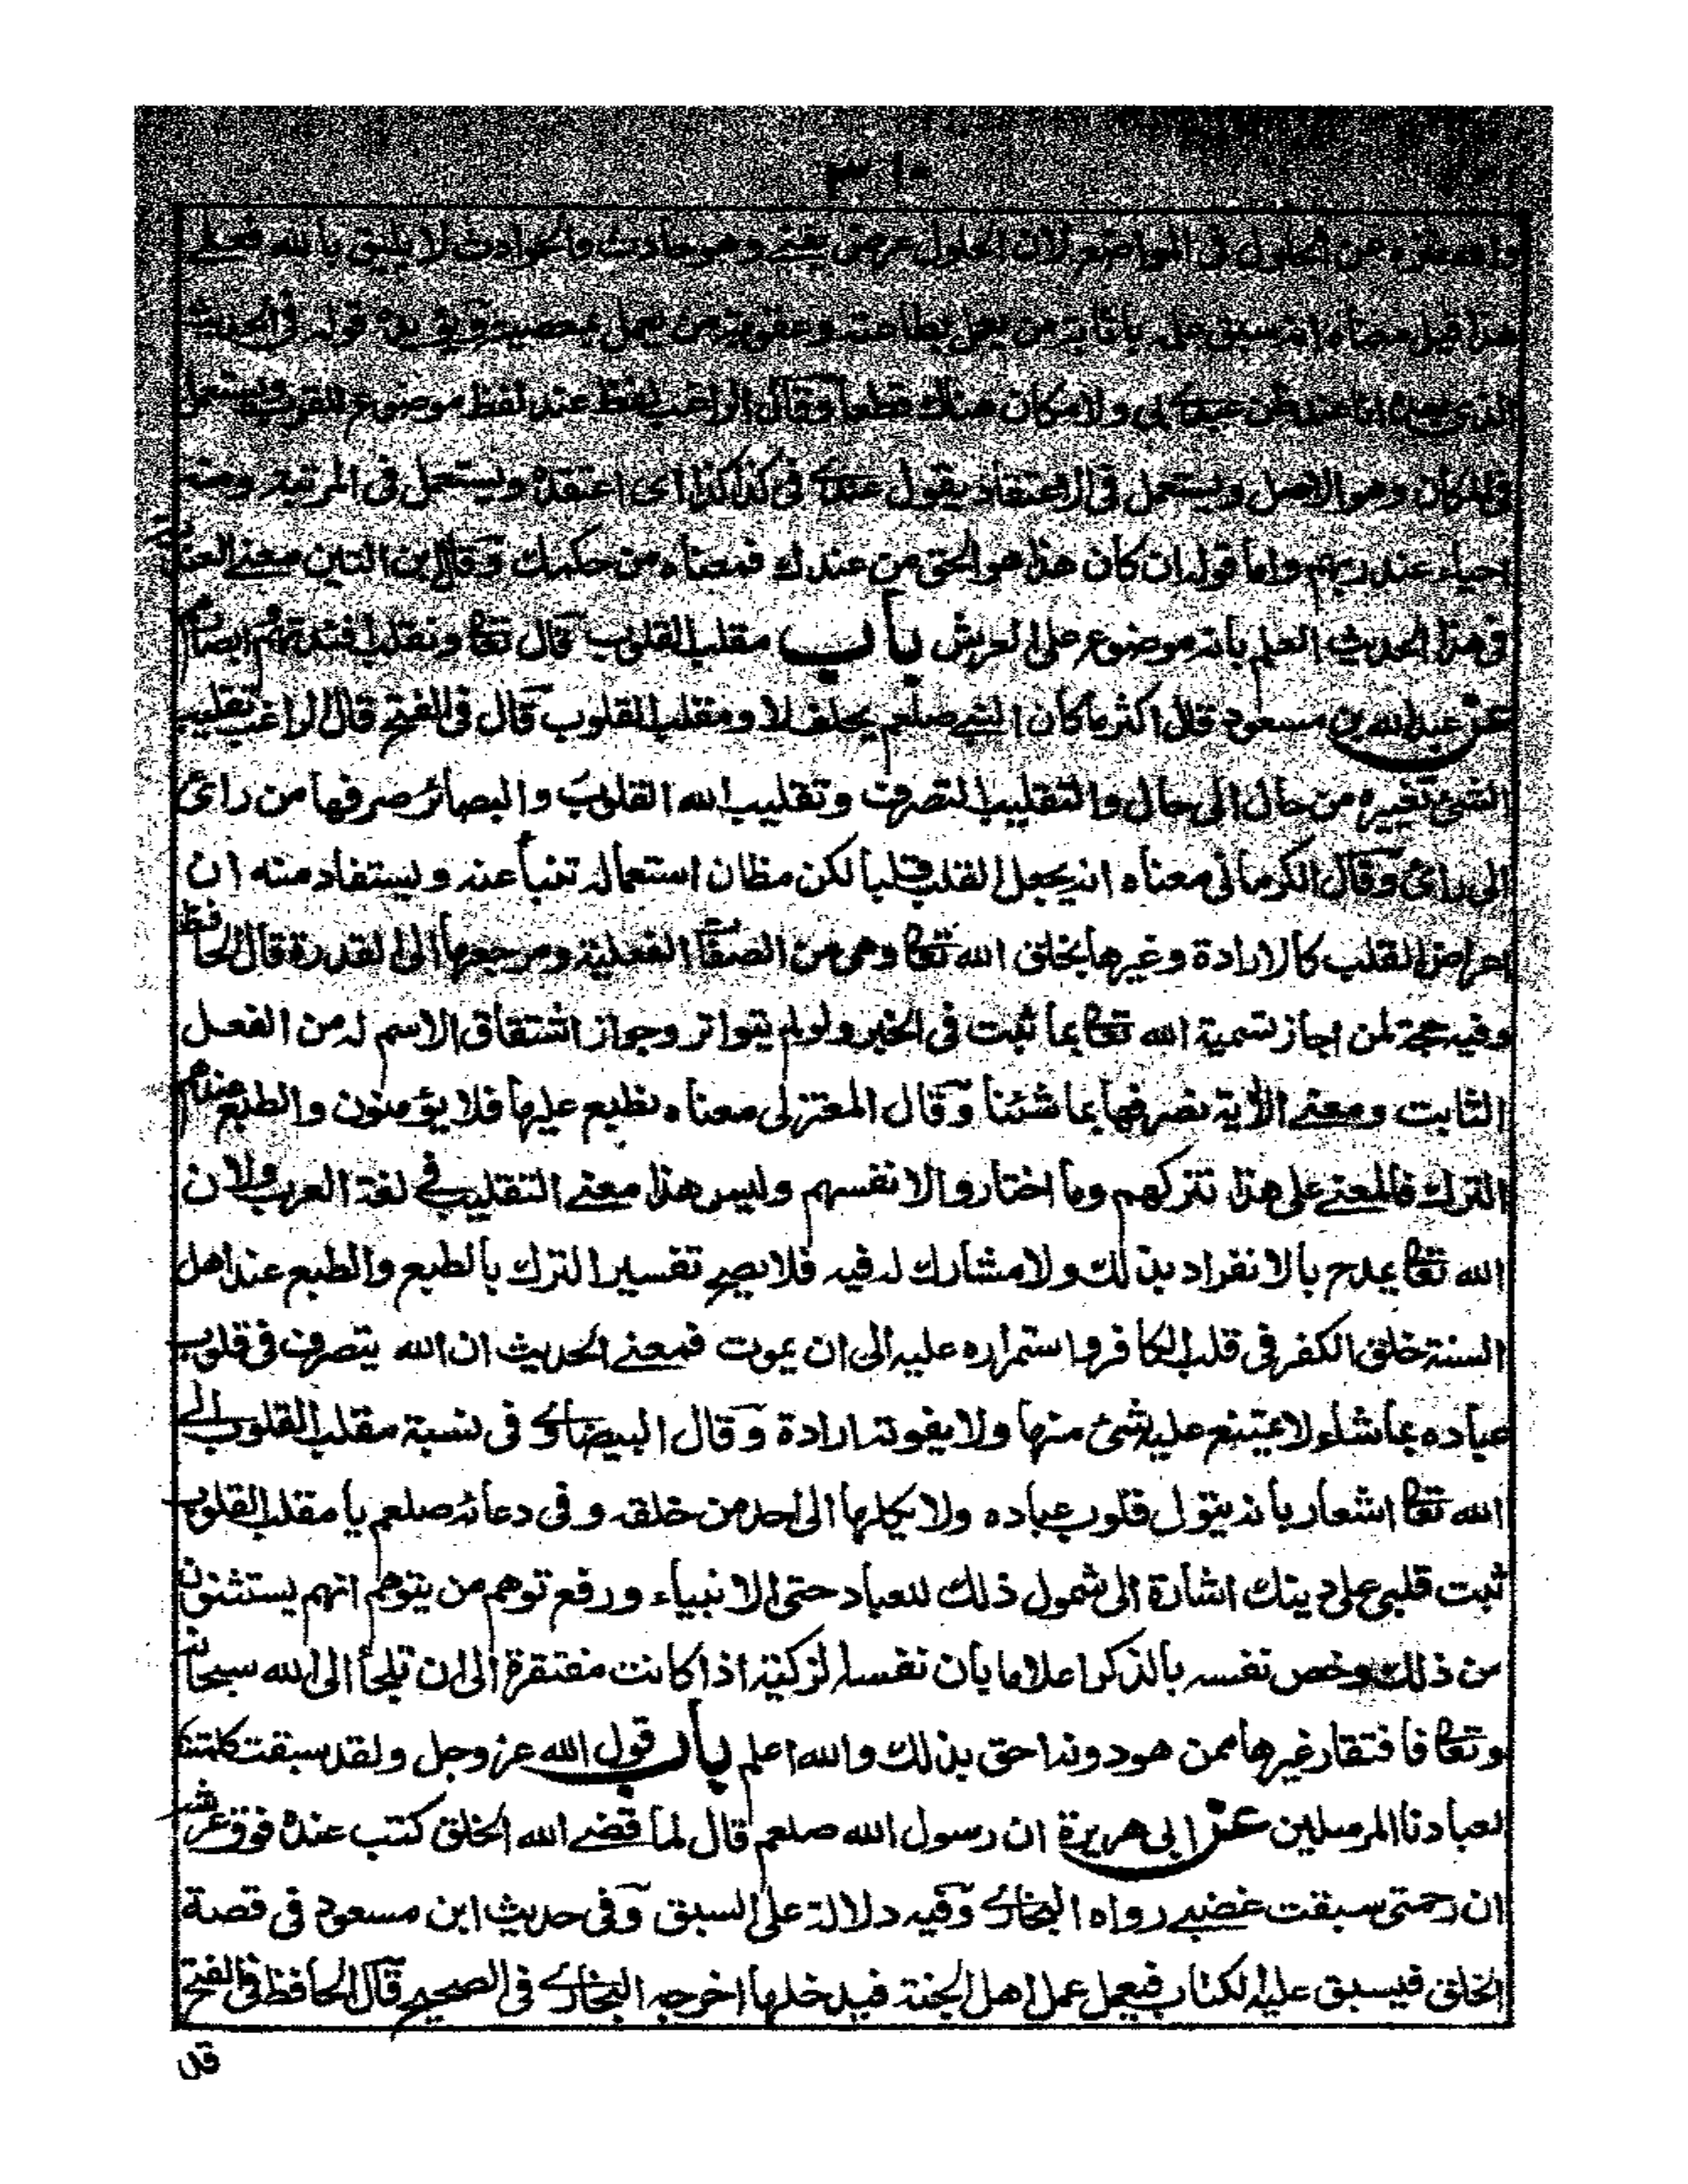 ٣١٠
والله منزه عن الحلول فى المواضع لان الحلول عرض يفنى وهو حادث والحوادث لا يليق بالله فعلى
هذا قيل معناه انه سبق علمه باثابة من يعمل بطاعته وعقوبة من يعمل بمعصيته ويؤيده قوله فى الحديث
الذى بعده انا عند ظن عبدى بى ولا مكان هناك قطعا وقال الراغب لفظ عند لفظ موضوع للقرب ويستعمل
فى المكان وهو الاصل ويستعمل فى الاعتقاد يقول عندى فى كذا كذا اى اعتقده ويستعمل فى المرتبة ومنه
احياء عند ربهم واما قوله ان كان هذا هو الحق من عندك فمعناه من حكمك وقال ابن التين معنى العندية
فى هذا الحديث العلم بانه موضوع على العرش باب مقلب القلوب قال تعا ونقلب افئدتهم وابصارهم
عن عبد الله بن مسعود قال اكثر ما كان النبى صلعم يحلف لا ومقلب القلوب قال فى الفتح قال الراغب تقليب
الشئ تغييره من حال الى حال والتقليب التصرف وتقليب الله القلوب والبصائر صرفها من رائ
الى رائ وقال الكرمانى معناه انه يجعل القلب قلبا لكن مظان استعماله تنبأ عنه ويستفاد منه ان
اعراض القلب كالارادة وغيرها بخلق الله تعا وهى من الصفات الفعلية ومرجعها الى القدرة قال الحافظ
وفيه حجة لمن اجاز تسمية الله تعا بما ثبت فى الخبر ولو لم يتواتر وجواز اشتقاق الاسم له من الفعل
الثابت ومعنى الأية نصرفها بما شئنا وقال المعتزلى معناه نطبع عليها فلا يؤمنون والطبع عندهم
الترك فالمعنى على هذا نتركهم وما اختاروا لانفسهم وليس هذا معنى التقليب فى لغة العرب ولان
الله تعا يمدح بالانفراد بذلك ولا مشارك له فيه فلا يصح تفسير الترك بالطبع والطبع عند اهل
السنة خلق الكفر فى قلب الكافر واستمراره عليه الى ان يموت فمعنى الحديث ان الله يتصرف فى قلوب
عباده بما شاء لا يمتنع عليه شئ منها ولا يفوته ارادة وقال البيضاوى فى نسبة مقلب القلوب الى
الله تعا اشعار بانه يتول قلوب عباده ولا يكلها الى احد من خلقه وفى دعائه صلعم يا مقلب القلوب
ثبت قلبى على دينك اشارة الى شمول ذلك للعباد حتى الانبياء ورفع توهم من يتوهم انهم يستثنون
من ذلك وخص نفسه بالذكر اعلاما بان نفسه الزكية اذا كانت مفتقرة الى ان تلجأ الى الله سبحانه
وتعا فافتقار غيرها ممن هو دونه احق بذلك والله اعلم باب قول الله عز وجل ولقد سبقت كلمتنا
لعبادنا المرسلين عن ابى هريرة ان رسول الله صلعم قال لما قضى الله الخلق كتب عنده فوق عرشه
ان رحمتى سبقت غضبى رواه البخارى وفيه دلالة على السبق وفى حديث ابن مسعود فى قصة
الخلق فيسبق عليه الكتاب فيعمل عمل اهل الجنة فيدخلها اخرجه البخارى فى الصحيح قال الحافظ فى الفتح
قال